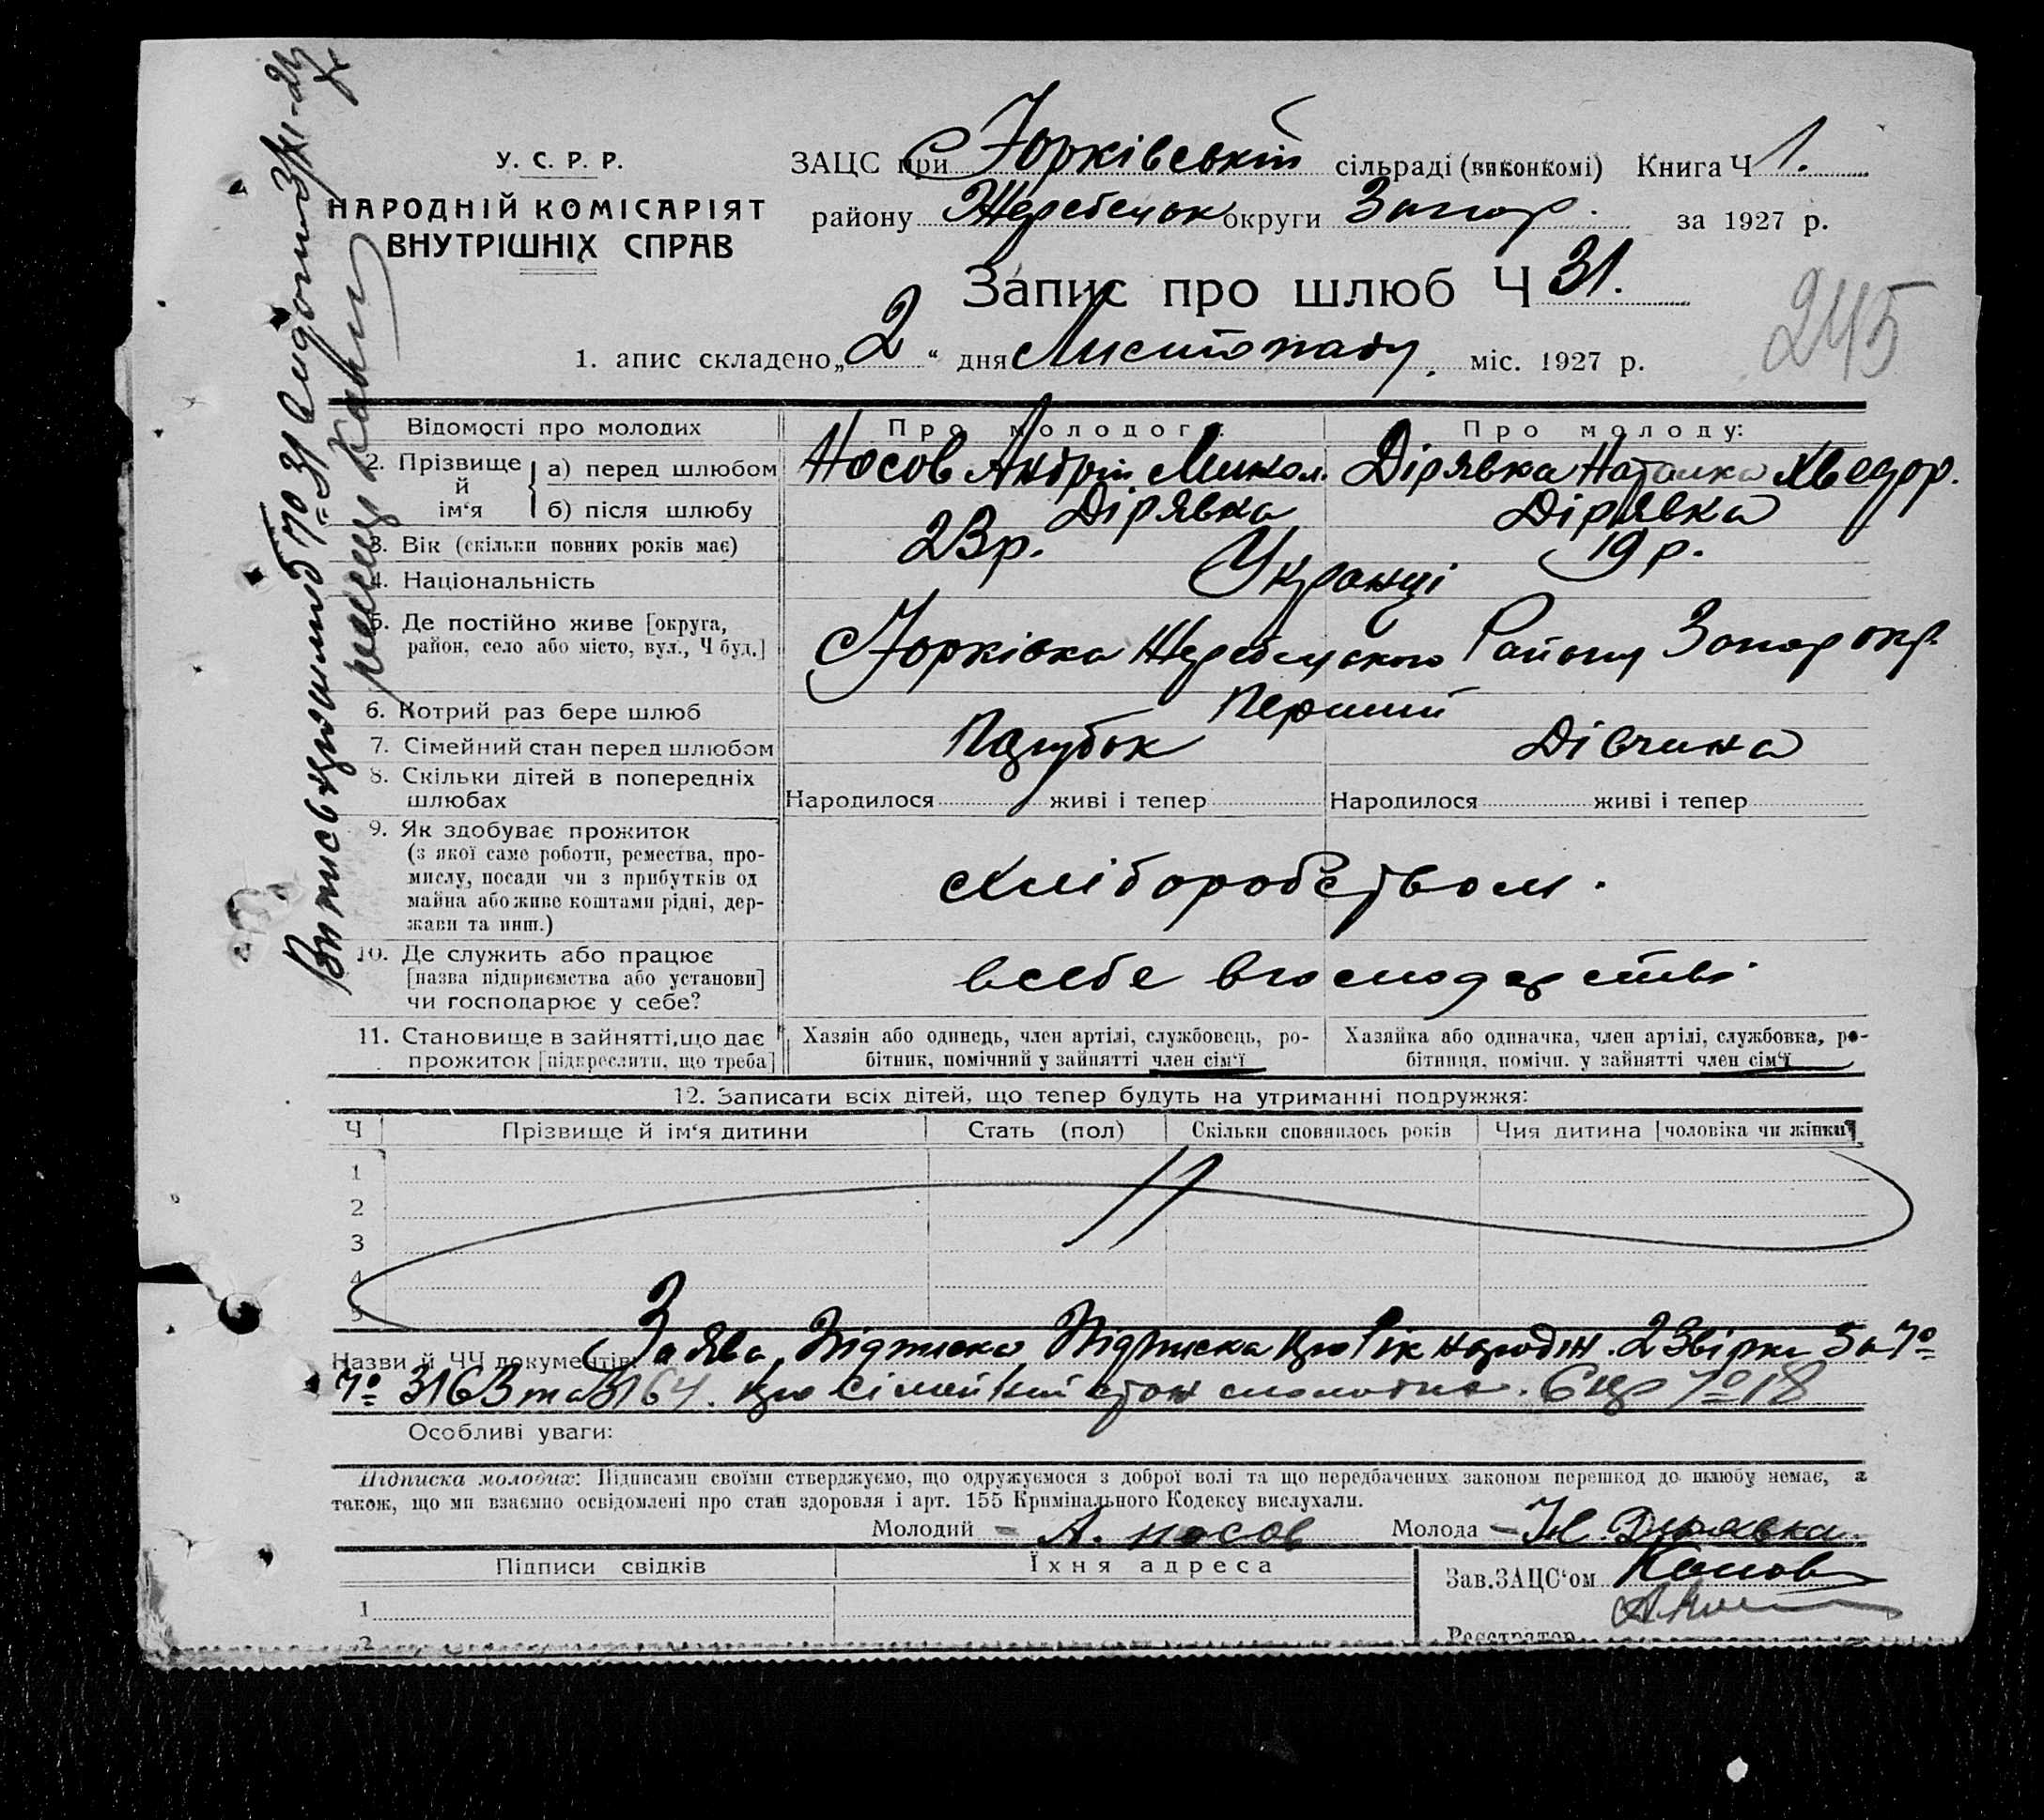 У. С. Р. Р.
НАРОДНІЙ КОМІСАРІЯТ
ВНУТРІШНІХ СПРАВ
ЗАЦС при Юрківській сільраді (виконкомі) Книга Ч 1.
району Жеребецьк округи Запор. за 1927 р.
Запис про шлюб Ч 31.
245
1. апис складено „2“ дня Листопаду. міс. 1927 р.
Відомості про молодих
Про молодог
Про молоду:
2. Прізвище й ім‘я
а) перед шлюбом
Носов Андрій Микол.
Дірявка Наталка Хведор.
б) після шлюбу
Дірявка
Дірявка
3. Вік (скільки повних років має)
23 р.
19 р.
4. Національність
Українці
5. Де постійно живе [округа,
район, село або місто, вул., Ч буд.]
Юрківка Жеребецького Району Запор окр.
6. Котрий раз бере шлюб
Перший
7. Сімейний стан перед шлюбом
Парубок
Дівчина
8. Скільки дітей в попередніх
шлюбах
Народилося живі і тепер
Народилося живі і тепер
9. Як здобуває прожиток
(з якої саме роботи, ремества, про-
мислу, посади чи з прибутків од
майна або живе коштами рідні, дер-
жави та инш.)
хліборобством.
10. Де служить або працює
[назва підприємства або установи]
чи господарює у себе?
всебе в господарстві
11. Становище в зайнятті, що дає
прожиток [підкреслити, що треба]
Хазяін або одинець, член артілі, службовець, ро-
бітник, помічний у зайнятті член сім‘ї
Хазяйка або одиначка, член артілі, службовка, ро-
бітниця, помічн. у зайнятті член сім‘ї
12. Записати всіх дітей, що тепер будуть на утриманні подружжя:
Ч
Прізвище й ім‘я дитини
Стать (пол)
Скільки сповнилось років
Чия дитина [чоловіка чи жінки]
1
2
3
4
5
Назви й ЧЧ документів: Заява, Підписка, Підписка про Рік народж. 2 Звірки За №
№ 3163 та 3164. про сімейний стан молодих. № 18
Особливі уваги:
Підписка молодих: Підписами своїми стверджуємо, що одружуємося з доброї волі та що передбачених законом перешкод до шлюбу немає, а
також, що ми взаємно освідомлені про стан здоровля і арт. 155 Кримінального Кодексу вислухали.
Молодий А. носов Молода Н. Дирявка
Підписи свідків
Їхня адреса
1
2
Зав. ЗАЦС‘ом
Реєстратор